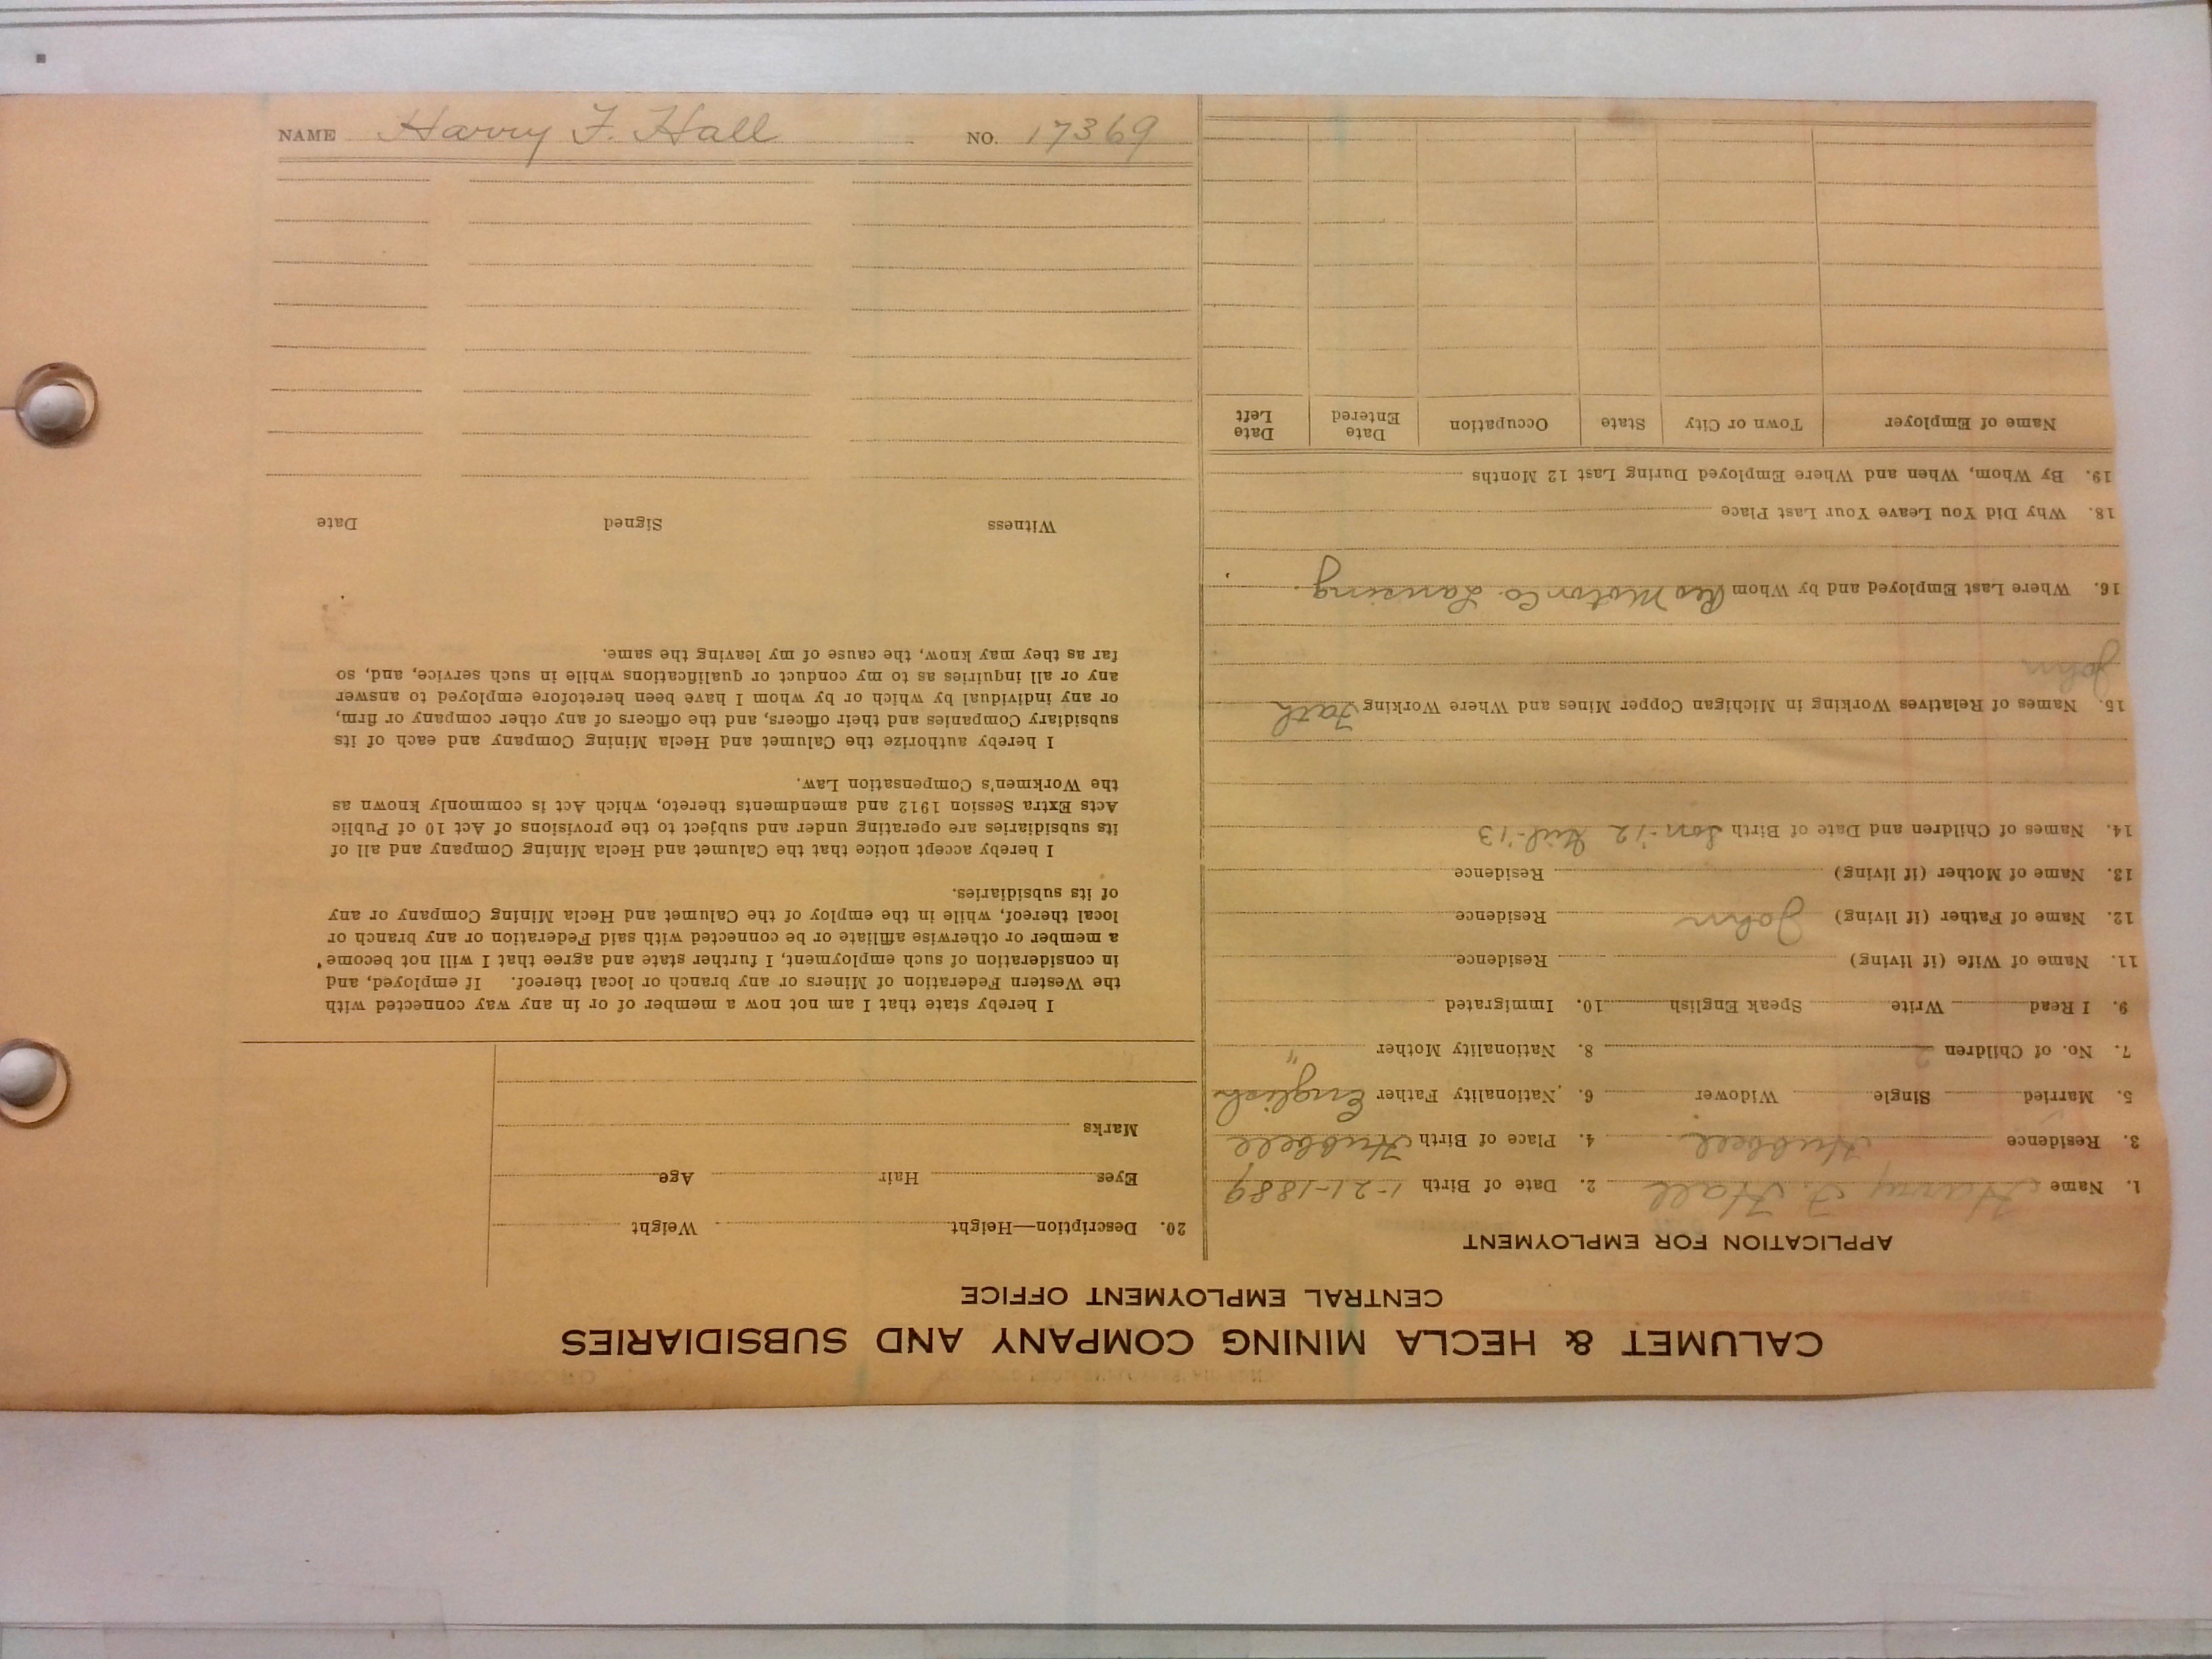 CALUMET & HECLA MINING COMPANY AND SUBSIDIARIES
CENTRAL EMPLOYMENT OFFICE
APPLICATION FOR EMPLOYMENT
1. Name Harry F. Hall 2. Date of Birth 1-21-1889
3. Residence Hubbell 4. Place of Birth Hubbell
5. Married Single Widower 6. Nationality Father English
7. No. of Children 2 8. Nationality Mother "
9. I Read Write Speak English 10. Immigrated
11. Name of Wife (if living) Residence
12. Name of Father (if living) John Residence
13. Name of Mother (if living) Residence
14. Names of Children and Date of Birth Son-'12 -'13
15. Names of Relatives Working in Michigan Copper Mines and Where Working Fath
John
16. Where Last Employed and by Whom Reo Motor Co. Lansing.
18. Why Did You Leave Your Last Place
19. By Whom, When and Where Employed During Last 12 Months
Name of Employer Town or City State Occupation Date Entered Date Left
20. Description—Height Weight
Eyes Hair Age
Marks
I hereby state that I am not now a member of or in any way connected with
the Western Federation of Miners or any branch or local thereof. If employed, and
in consideration of such employment, I further state and agree that I will not become
a member or otherwise affiliate or be connected with said Federation or any branch or
local thereof, while in the employ of the Calumet and Hecla Mining Company or any
of its subsidiaries.
I hereby accept notice that the Calumet and Hecla Mining Company and all of
its subsidiaries are operating under and subject to the provisions of Act 10 of Public
Acts Extra Session 1912 and amendments thereto, which Act is commonly known as
the Workmen's Compensation Law.
I hereby authorize the Calumet and Hecla Mining Company and each of its
subsidiary Companies and their officers, and the officers of any other company or firm,
or any individual by which or by whom I have been heretofore employed to answer
any or all inquiries as to my conduct or qualifications while in such service, and, so
far as they may know, the cause of my leaving the same.
Witness Signed Date
NAME Harry F. Hall NO. 17369